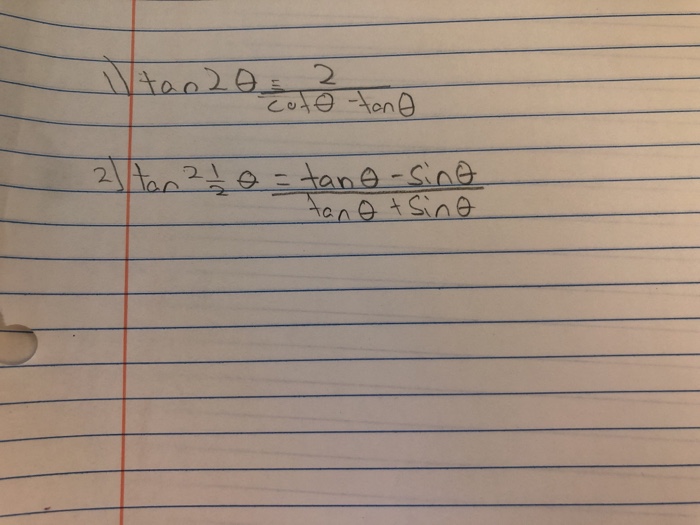 1) tan 2θ = 2
cotθ - tanθ
2) tan² ½ θ = tanθ - sinθ
tanθ + sinθ